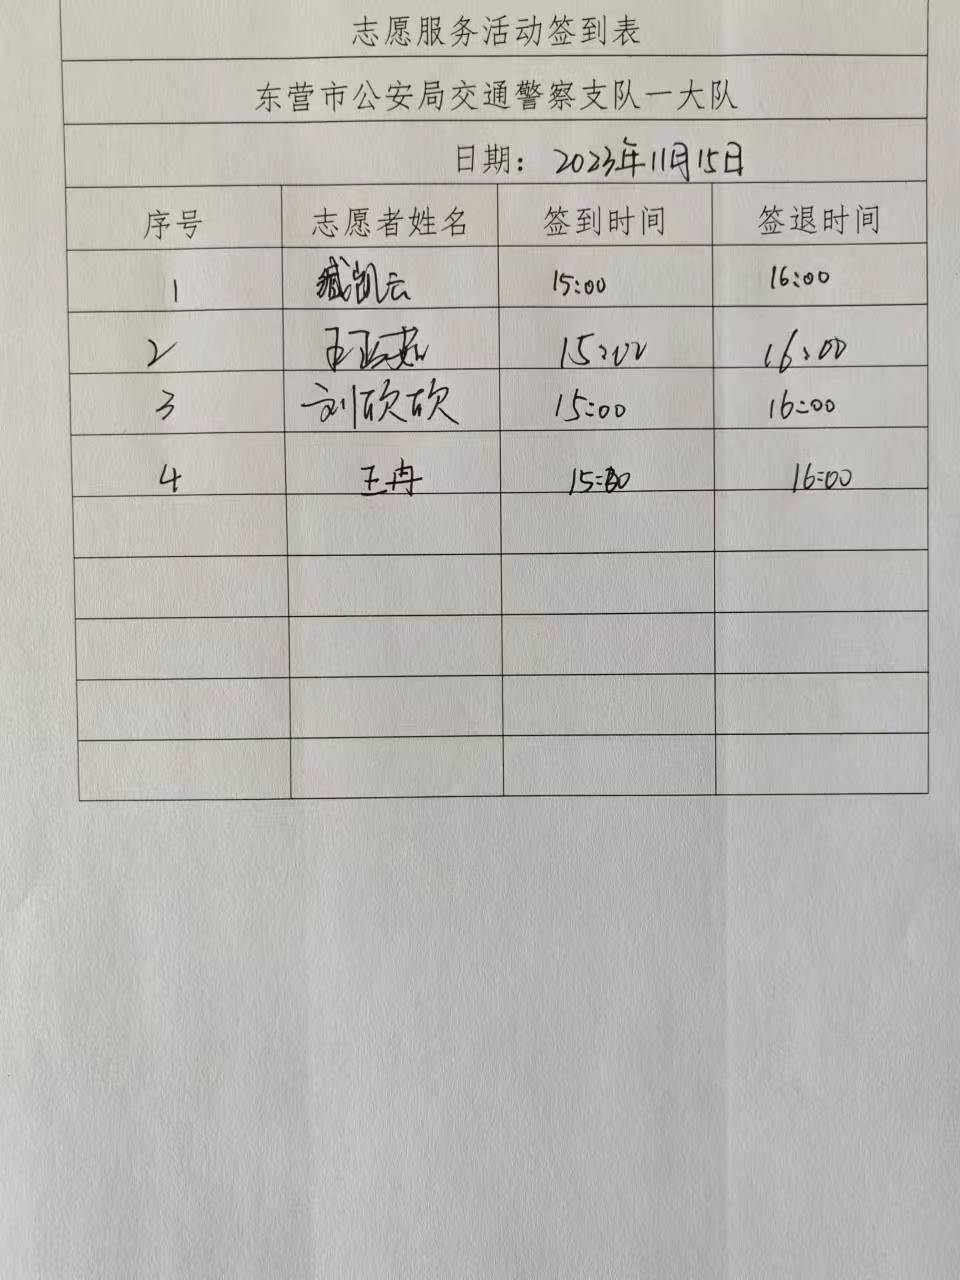 志愿服务活动签到表
东营市公安局交通警察支队一大队
日期：2023年11月15日
序号 志愿者姓名 签到时间 签退时间
1 臧凯云 15:00 16:00
2 王 15:00 16:00
3 刘欣欣 15:00 16:00
4 王冉 15:00 16:00